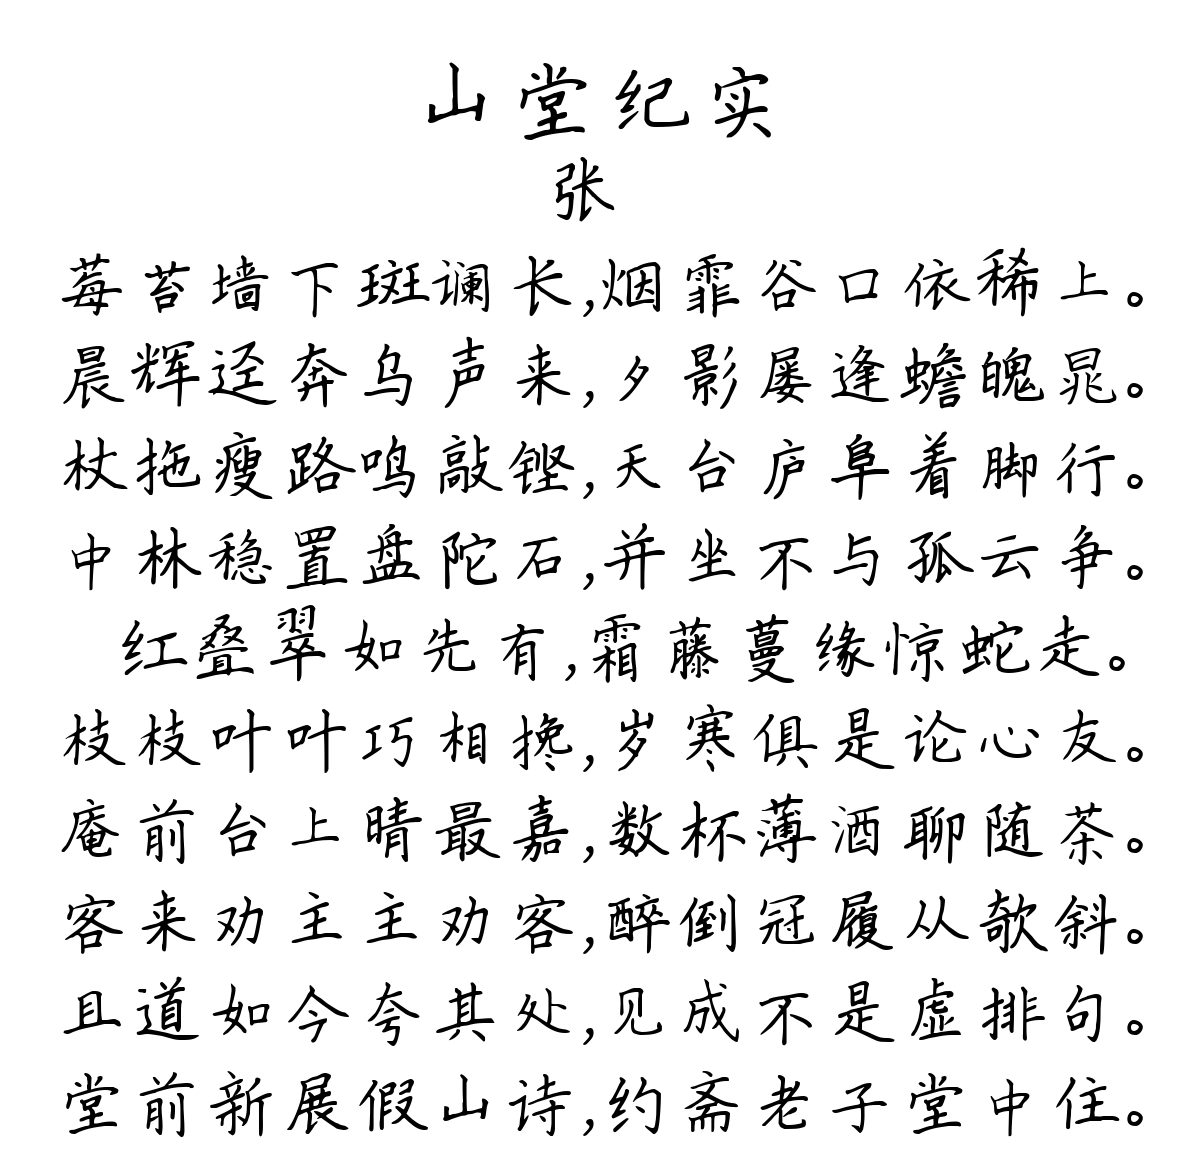 山堂纪实
张
莓苔墙下斑谰长,烟霏谷口依稀上。
晨辉迳奔乌声来,夕影屡逢蟾魄晃。
杖拖瘦路鸣敲铿,天台庐阜着脚行。
中林稳置盘陀石,并坐不与孤云争。
红叠翠如先有,霜藤蔓缘惊蛇走。
枝枝叶叶巧相搀,岁寒俱是论心友。
庵前台上晴最嘉,数杯薄酒聊随茶。
客来劝主主劝客,醉倒冠履从欹斜。
且道如今夸其处,见成不是虚排句。
堂前新展假山诗,约斋老子堂中住。